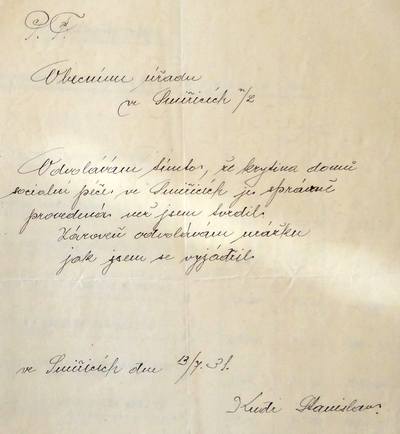 P. T.
Obecnímu úřadu
ve Smiřicích n/L
Odvolávám tímto, že krytina domů
socialní péče ve Smiřicích je správně
provedená než jsem tvrdil.
Zároveň odvolávám urážku
jak jsem se vyjádřil.
ve Smiřicích dne 13/7. 31.
Stanislav.